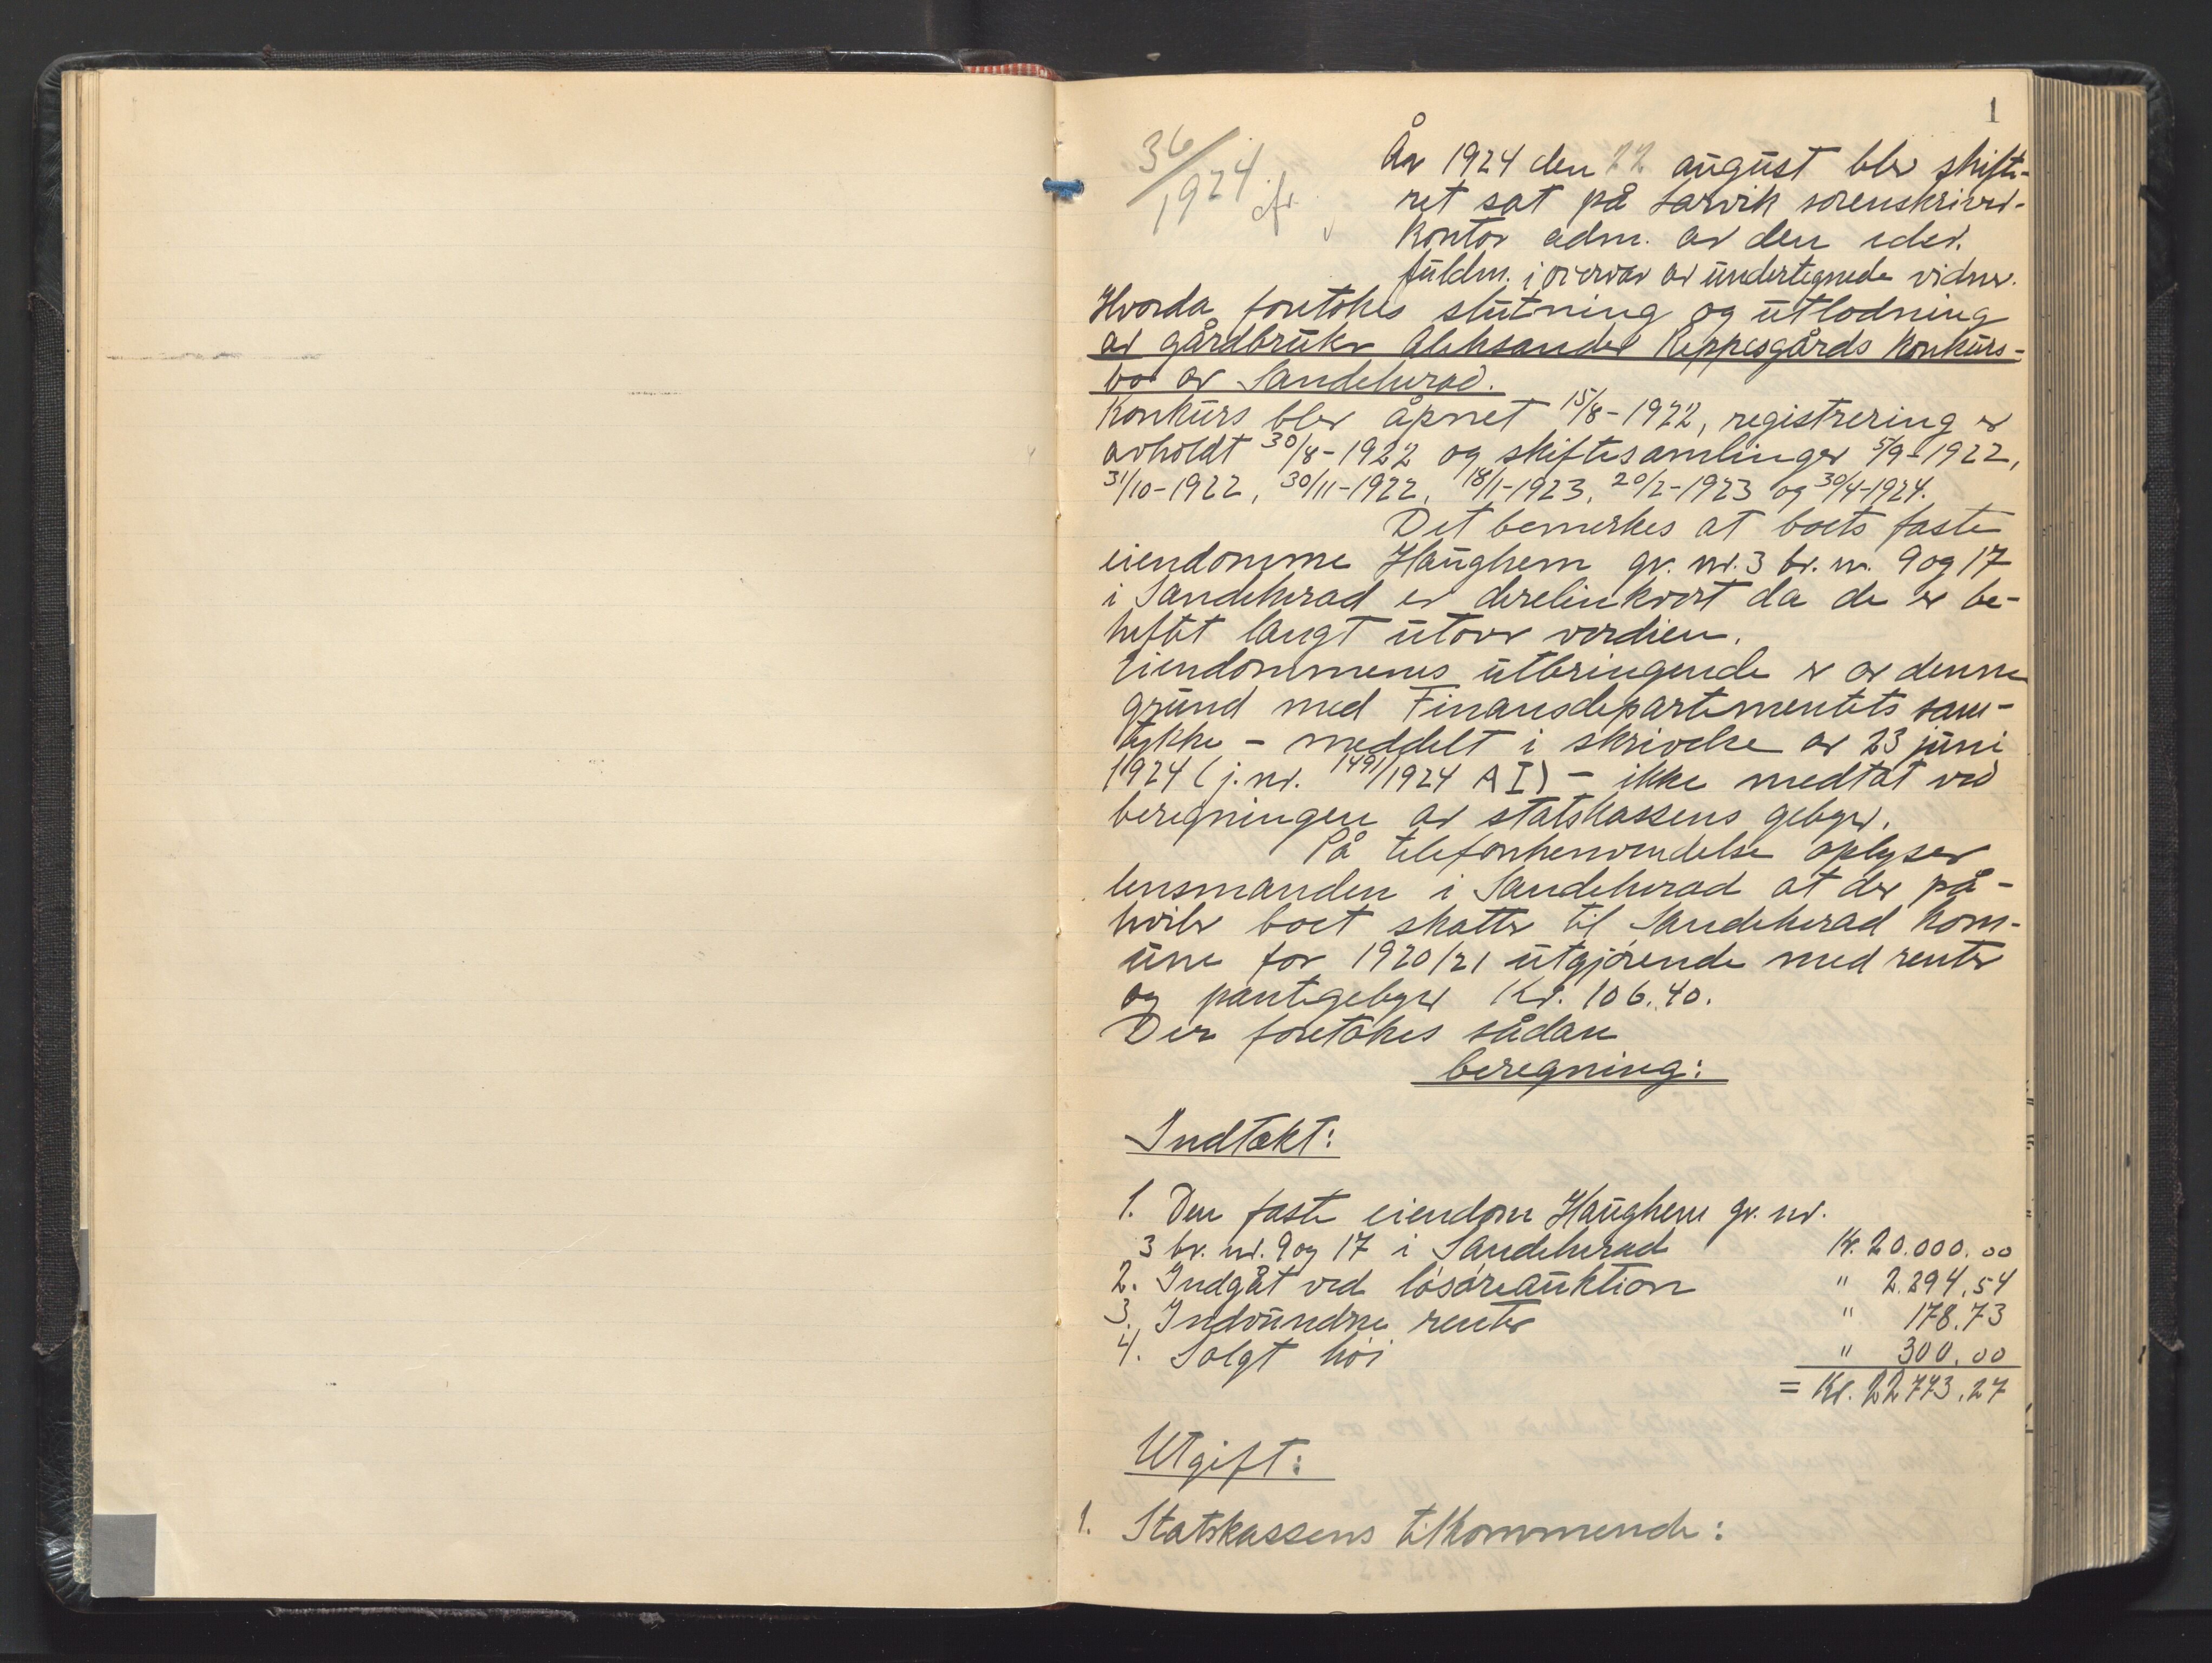 1
36/1924 cfr.
År 1924 den 22. august blev skifte-
ret sat på Larvik sorenskriver-
kontor adm. av den eder.
fuldm. i overvær av undertegnede vidner.
Hvorda foretokes slutning og utlodning
av gårdbruker Aleksander Keppesgårds konkurs-
bo av Sandeherad.
Konkurs blev åpnet 15/8-1922, registrering er
avholdt 30/8-1922 og skiftesamlinger 5/9-1922,
31/10-1922, 30/11-1922, 18/1-1923, 20/2-1923 og 30/4-1924.
Det bemerkes at boets faste
eiendomme Haughem gr. nr. 3 br. nr. 9 og 17
i Sandeherad er derelinkvert da de er be-
heftet langt utover verdien.
Eiendommenes utbringende er av denne
grund med Finansdepartementets sam-
tykke - meddelt i skrivelse av 23 juni
1924 (j.nr. 1491/1924 A I) - ikke medtat ved
beregningen av statskassens gebyr.
På telefonhenvendelse oplyser
lensmanden i Sandeherad at der på-
hviler boet skatter til Sandeherad kom-
une for 1920/21 utgjørende med renter
og pantegebyr Kr. 106.40.
Der foretokes sådan
beregning:
Indtekt:
1. Den faste eiendom Haughem gr. nr.
3 br. nr. 9 og 17 i Sandeherad Kr. 20.000.00
2. Indgåt ved løsøreauktion " 2.294.54
3. Indvundne renter " 178.73
4. Solgt høi " 300.00
= Kr. 22773.27
Utgift:
1. Statskassens tilkommende: